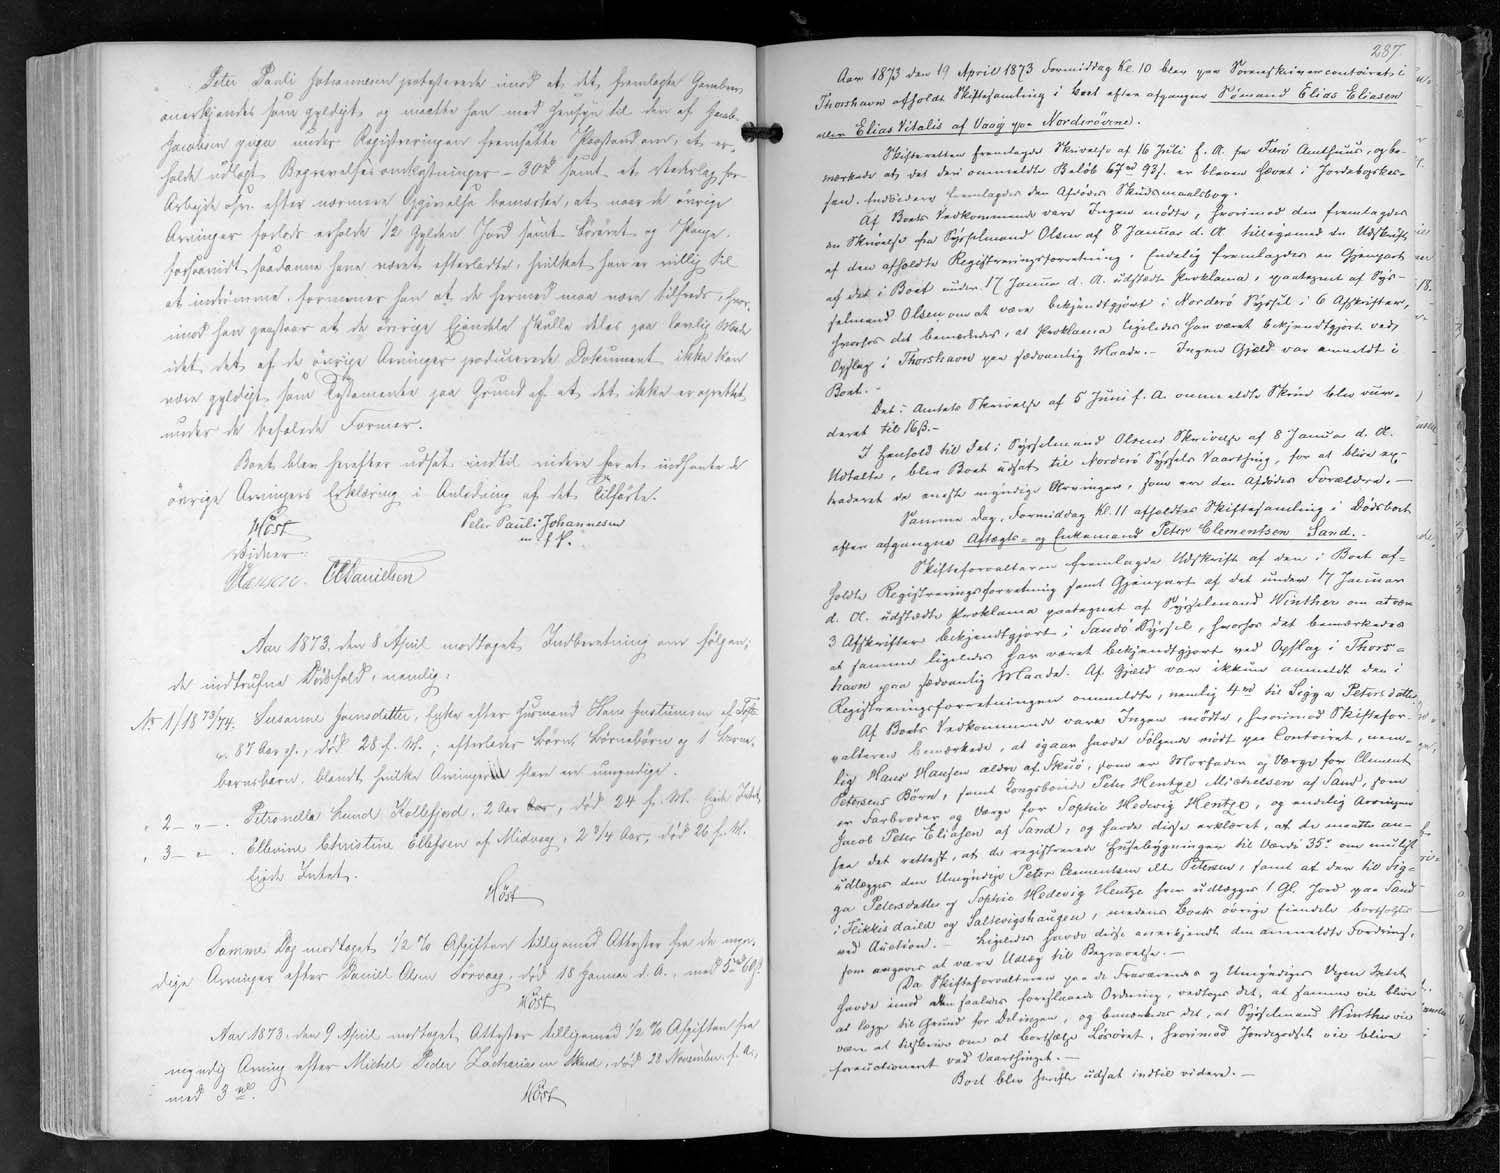 Peter Pauli Johannesen protesterede imod at det fremlagte Gavebrev
anerkjendes som gyldigt og maatte han med Hensyn til den af Jacob
Jacobsen  under Registreringen fremsatte Paastand om, at er-
holde udlagt Begravelsesomkostninger - 30 rd samt et Vederlag for
Arbejde  efter nærmere Opgivelse bemærke, at naar de øvrige
Arvinger forlods erholde 1/2 Gylden Jord samt  og
forsaavidt saadanne have været efterladte, hvilket han er villig til
at indrømme, formener han at de hermed maa være tilfreds, hvor-
imod han paastaar at de øvrige Ejendele skulle deles paa lovlig Maade
idet det af de øvrige Arvinger producerede Dokument ikke kan
være gyldigt som Testamente paa Grund af at det ikke er oprettet
under de befalede Former.
Boet blev herefter udsat indtil videre for at indhente de
øvrige Arvingers Erklæring i Anledning af det Tilførte.
Høst Peter Pauli Johannesen
m. f. P.
Vidner:
Hansen. CC Danielsen
Aar 1873, den 8 April modtaget Indberetning om følgen-
de indtrufne Dødsfald, nemlig:
No 1/1873/74. Susanne Joensdatter, Enke efter Husmand Hans Justinussen af
87 Aar gl., død 28 f. M.; efterlader Børn, Børnebørn og 1 Barne-
barnsbarn, blandt hvilke Arvinger flere ere umyndige.
" 2 - " - . Petronella Lund Kollefjord, 2 Aar, død 24 f. M. Ejede Intet
" 3 - " - . Ellevine Christine Ellefsen af Midvaag, 2 3/4 Aar, død 26 f. M.
Ejede Intet.
Høst
Samme Dag modtaget 1/2 % Afgiften tilligemed Attester fra de myn-
dige Arvinger efter Daniel Olsen Sørvaag, død 18 Januar d. A., med 5 rd 69 s.
Høst
Aar 1873, den 9 April modtaget Attester tilligemed 1/2 % Afgiften fra
myndig Arving efter Michel Peder Zachariasen , død 28 November f. A.,
med 3 rd.
Høst
287.
Aar 1873 den 19 April 1873 Formiddag Kl. 10 blev paa Sorenskrivercontoiret i
Thorshavn afholdt Skiftesamling i Boet efter afgangne Sømand Elias Eliasen
eller Elias Vitalis af Vaag paa Norderøerne.
Skifteretten fremlagde Skrivelse af 16 Juli f. A. fra Færø Amthuus, og be-
mærkede at, det deri ommeldte Beløb 67 rd 93 s. er bleven hævet i Jordebogskas-
sen. Endvidere fremlagdes den Afdødes Skudsmaalsbog.
Af Boets Vedkommende vare Ingen mødte, hvorimod der fremlagdes
en Skrivelse fra Sysselmand Olsen af 8 Januar d. A. tilligemed en Udskrift
af den afholdte Registreringsforretning. Endelig fremlagdes en Gjenpart
af det i Boet under 17 Januar d. A. udstedte Proklama, paategnet af Sys-
selmand Olsen om at være bekjendtgjort i Norderø Syssel i 6 Afskrifter,
hvorhos det bemærkedes, at Proklama ligeledes har været bekjendtgjort ved
Opslag i Thorshavn paa sædvanlig Maade. - Ingen Gjæld var anmeldt i
Boet. -
Det i Amtets Skrivelse af 5 Juni f. A. ommeldte Skrin blev vur-
deret til 16 ß. -
I Henhold til det i Sysselmand Olsens Skrivelse af 8 Januar d. A.
Udtalte, blev Boet udsat til Norderø Syssels Vaarthing, for at blive ex-
traderet de eneste myndige Arvinger, som ere den Afdødes Forældre. -
Samme Dag, Formiddag Kl. 11 afholdtes Skiftesamling i Dødsboet
efter afgangne Aftægts- og Enkemand Peter Clementsen Sand. -
Skifteforvalteren fremlagde Udskrift af den i Boet af-
holdte Registreringsforretning samt Gjenpart af det under 17 Januar
d. A. udstedte Proklama paategnet af Sysselmand Winther om at være
3 Afskrifter bekjendtgjort i Sandø Syssel, hvorhos det bemærkedes
at samme ligeledes har været bekjendtgjort ved Opslag i Thors-
havn paa sædvanlig Maade. Af Gjæld var ikkun anmeldt den i
Registreringsforretningen ommeldte, nemlig 4 rd til Sigga Petersdatter
Af Boets Vedkommende vare Ingen mødte, hvorimod Skiftefor-
valteren bemærkede, at igaar havde Følgende mødt paa Contoiret, nem-
lig Hans Hansen ældre af Skuø, som er Morfader og Værge for Clement
Petersens Børn, samt Kongsbonde Peter Hentze Michelsen af Sand, som
er Farbroder og Værge for Sophie Hedevig Hentze, og endelig Arvingen
Jacob Peter Eliasen af Sand, og havde disse erklæret, at de maatte an-
see det rettest, at de registrerede Huusebygninger til Værdi 35 rd om muligt
udlægges den Umyndige Peter Clementsen eller Petersen, samt at der til Sig-
ga Petersdatter og Sophie Hedevig Hentze hver udlægges 1 Gl. Jord paa Sand
i Teikkisdaild og Saltvigshaugen, medens Boets øvrige Eiendele bortsælges
ved Auction. - Ligeledes havde disse anerkjendt den anmeldte Fordring,
som angives at være Udlæg til Begravelse. -
Da Skifteforvalteren paa de Fraværendes og Umyndiges Vegne Intet
havde imod den saaledes foreslaaede Ordning, vedtoges det, at samme vil blive
at lægge til Grund for Delingen, og bemærkedes det, at Sysselmand Winther vil
være at tilskrive om at bortsælge Løsøret, hvorimod Jordegodset vil blive
forauctioneret ved Vaarthinget. -
Boet blev herefter udsat indtil videre. -